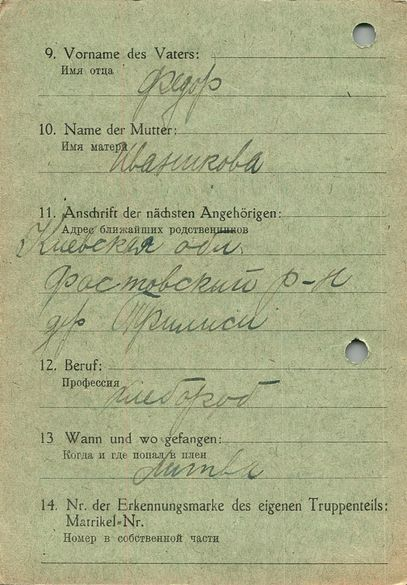 9. Vorname des Vaters:
Имя отца
Федор
10. Name der Mutter:
Имя матери
Иваникова
11. Anschrift der nächsten Angehörigen:
Адрес ближайших родственников
Киевская обл.
Фастовский р-н
дер Трилиси
12. Beruf:
Профессия
хлебороб
13 Wann und wo gefangen:
Когда и где попал в плен
Литва
14. Nr. der Erkennungsmarke des eigenen Truppenteils:
Matrikel-Nr.
Номер в собственной части